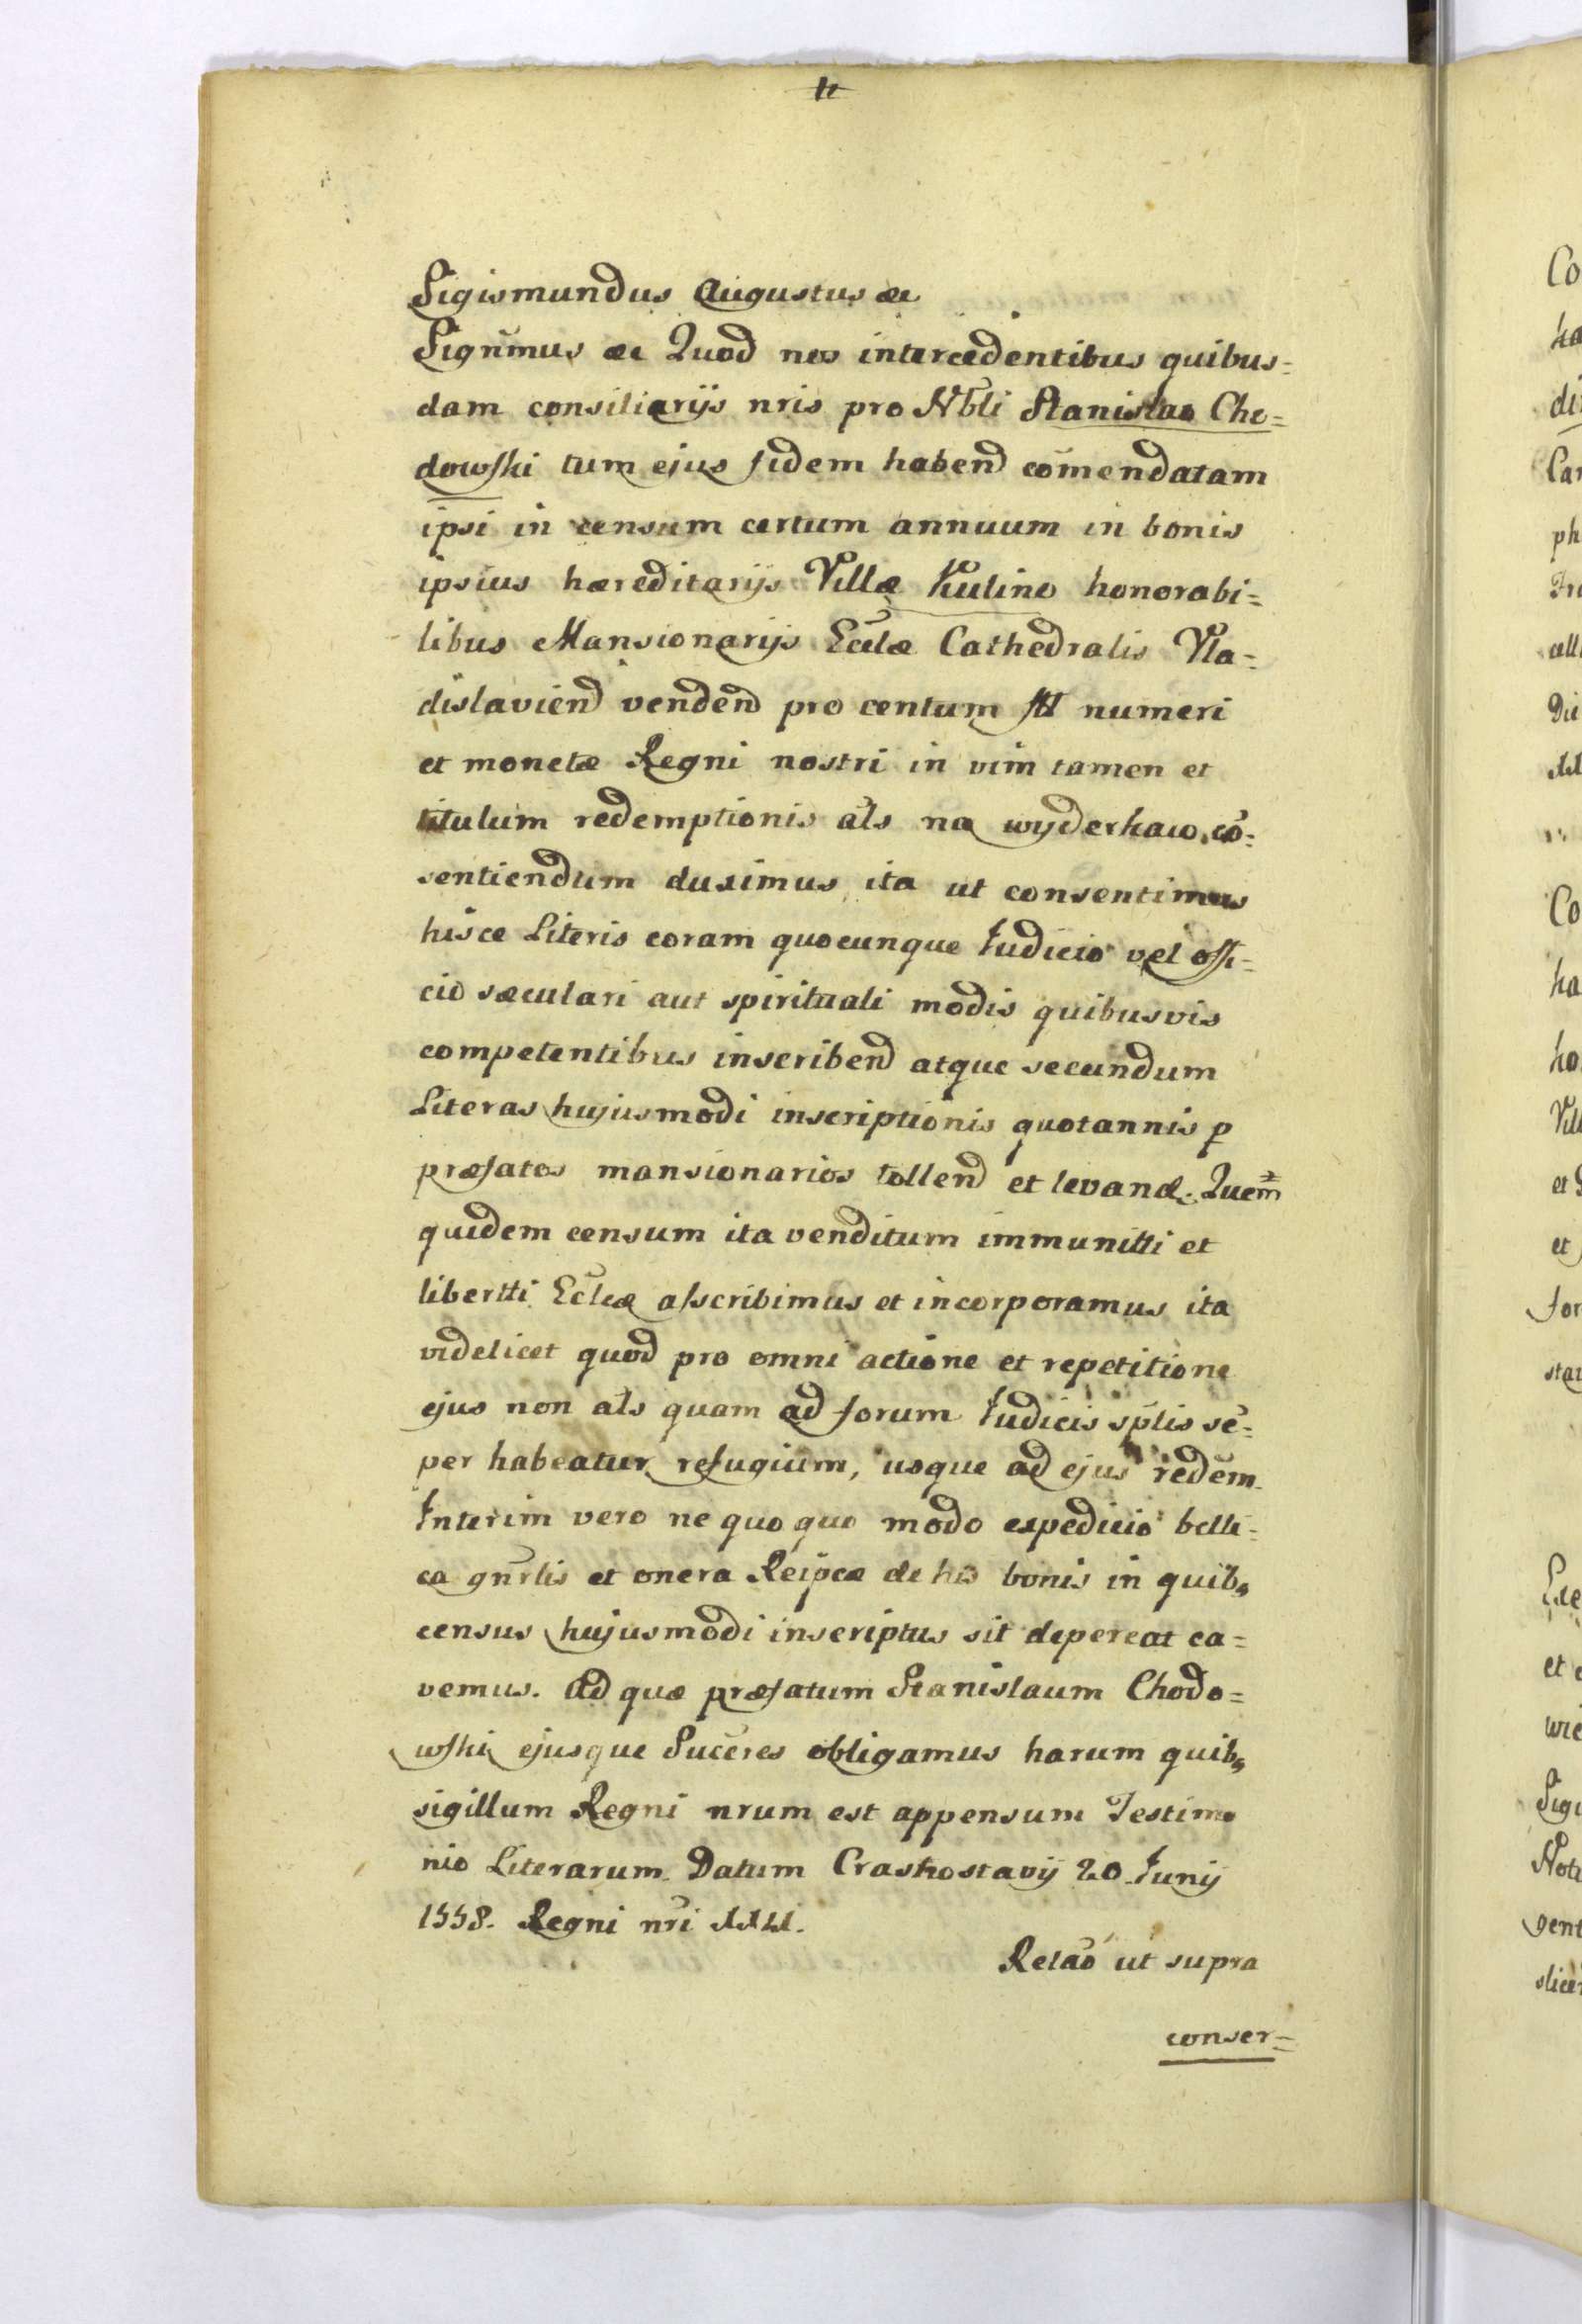 Sigismundus Augustus &c
Signm̄us &c Quod nos intercedentibus quibus=
dam consiliarijs nris pro Nb̄li Stanislao Cho=
dowski tum ejus fidem habend com̄endatam
ipsi in censum certum annuum in bonis
ipsius hæreditarijs Villæ Kulino honorabi=
libus Mansionarijs Eccl̄æ Cathedralis Vla=
dislaviend vendend pro centum numeri
et monetæ Regni nostri in vim tamen et
titulum redemptionis al̄s na wyderkaw cō=
sentiendum duximus ita ut consentimus
hisce Literis coram quocunque Iudicio vel offi=
cio sæculari aut spirituali modis quibusvis
competentibus inscribend atque secundum
Literas hujusmodi inscriptionis quotannis p
præfatos mansionarios tollend et levand. Quem̄
quidem censum ita venditum immunitti et
libertti Eccl̄æ asscribimus et incorporamus ita
videlicet quod pro omni actione et repetitione
ejus non al̄s quam ad forum Iudicis sp̄lis sē=
per habeatur refugium, usque ad ejus redēm.
Interim vero ne quo quo modo expedicio belli=
ca gn̄rlis et onera Reip̄cæ de his bonis in quibs
census hujusmodi inscriptus sit depereat ca=
vemus. Ad quæ præfatum Stanislaum Chodo=
wski ejusque Succ̄res obligamus harum quibs
sigillum Regni nrum est appensum Testimo
nio Literarum. Datum Crastostavij 20 Iunij
1558. Regni nr̄i
Relāo ut supra
conser=